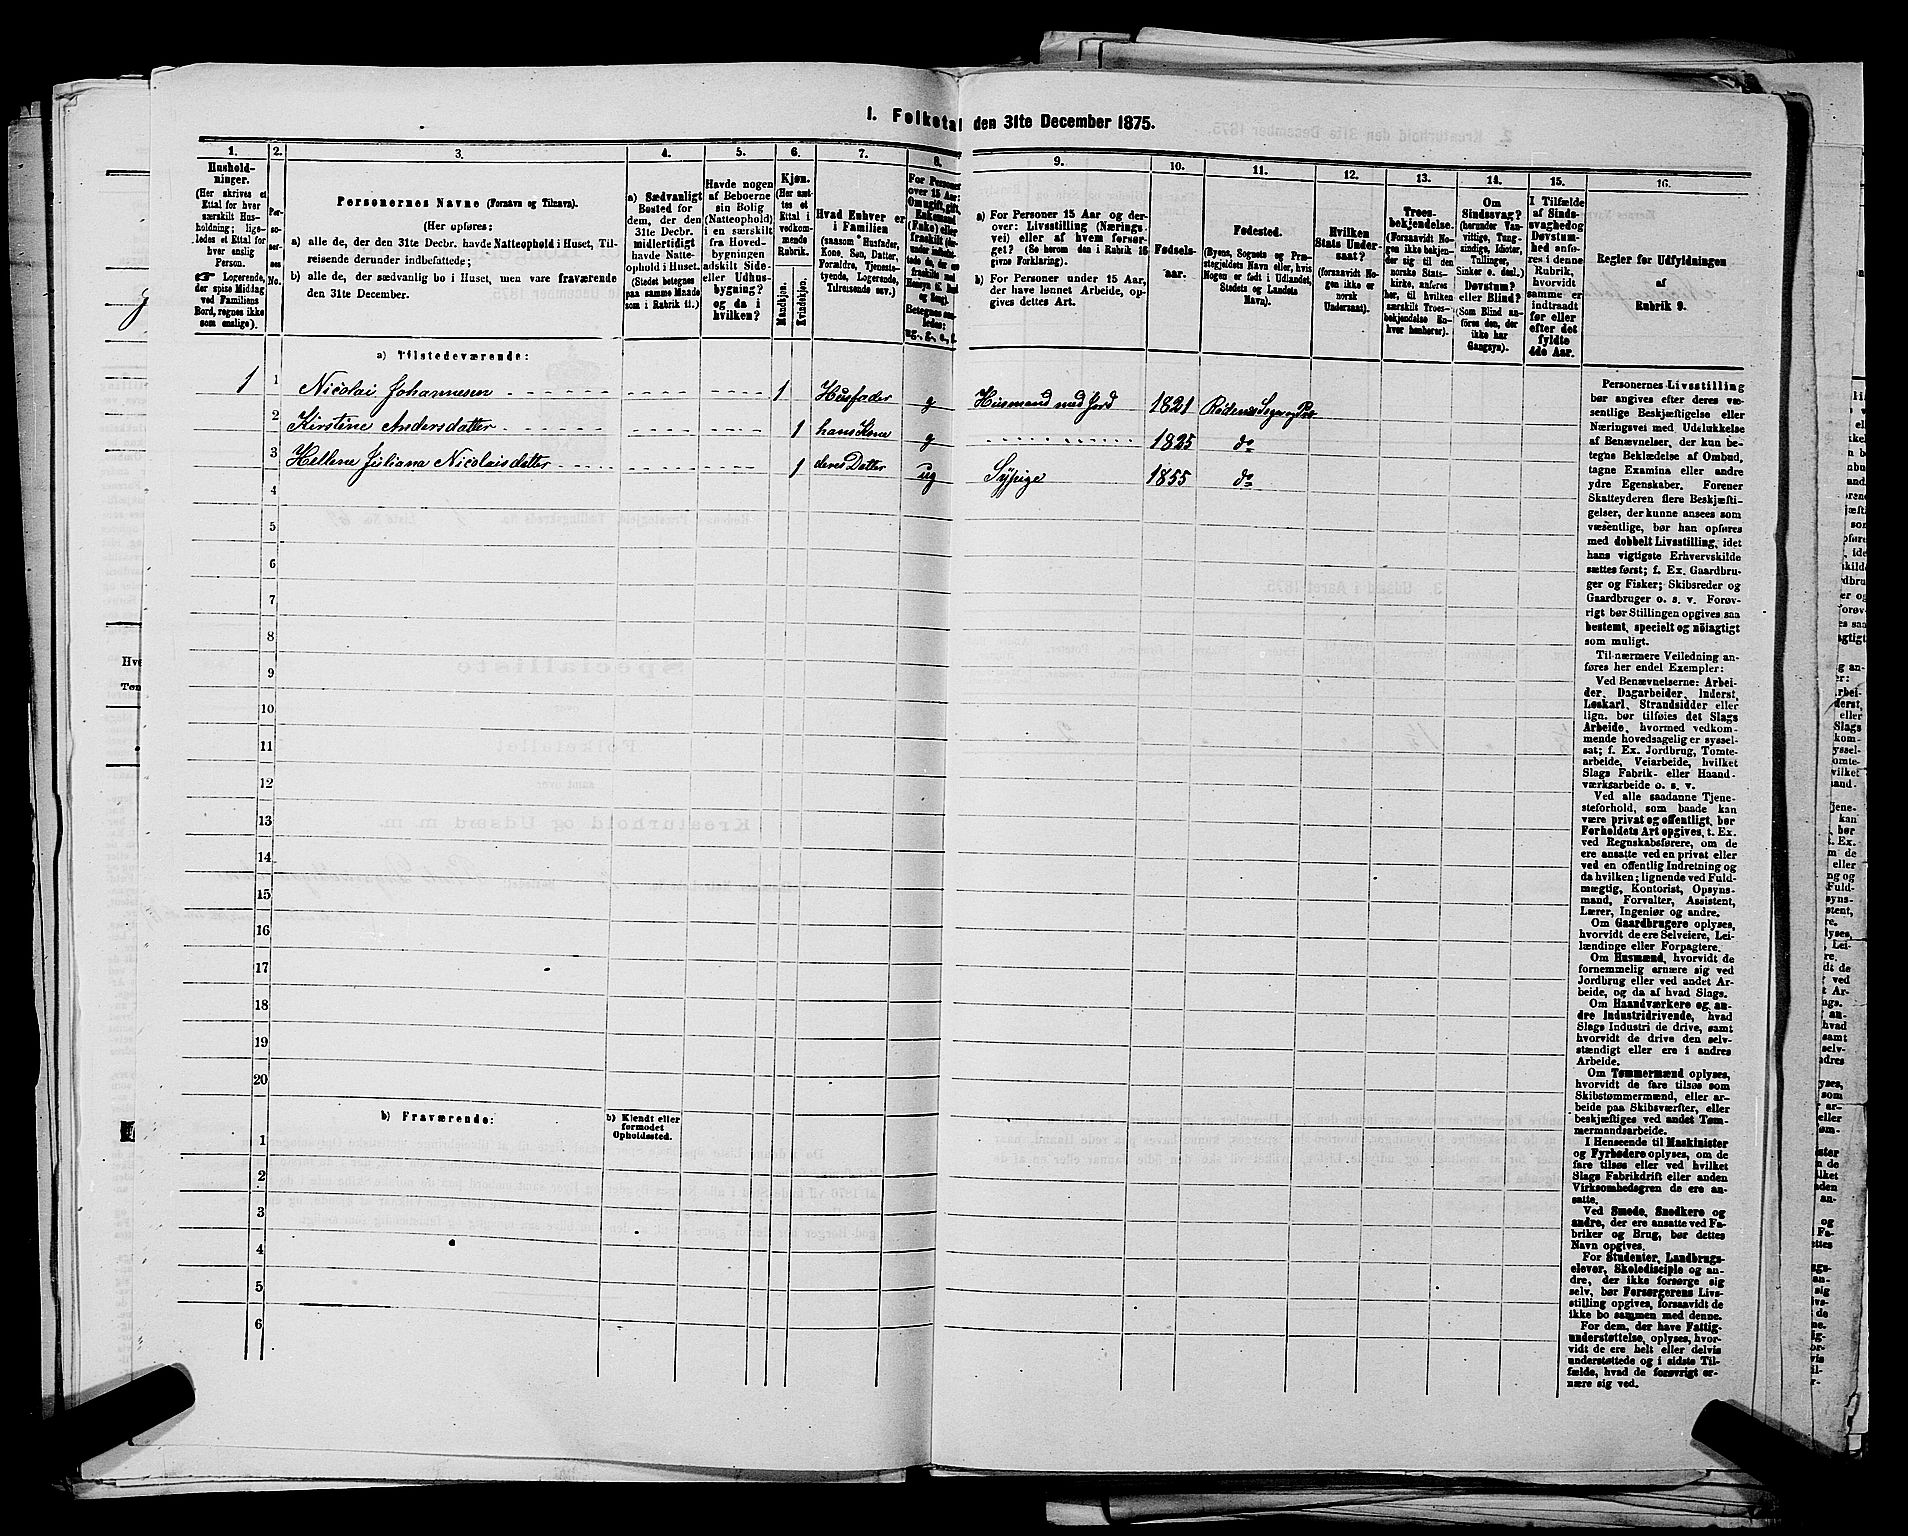 I. Folketal den 31te December 1875.
1. 2. 3. 4. 5. 6. 7. 8. 9. 10. 11. 12. 13. 14. 15. 16.
Hushold-
ninger.
(Her skrives et
Ettal for hver
særskilt Hus-
holdning; lige-
ledes et Ettal for
hver enslig
Person.
☞ Logerende,
der spise Middag
ved Familiens
Bord, regnes ikke
som enslige).
Per-
soner-
nes
No.
Personernes Navne (Fornavn og Tilnavn).
(Her opføres:
a) alle de, der den 31te Decbr. havde Natteophold i Huset, Til-
reisende derunder indbefattede;
b) alle de, der sædvanlig bo i Huset, men vare fraværende
den 31te December.
a) Sædvanligt
Bosted for
dem, der den
31te Decbr.
midlertidigt
havde Natte-
ophold i Huset.
(Stedet betegnes
paa samme Maade
som i Rubrik 11.)
Havde nogen
af Beboerne
sin Bolig
(Natteophold)
i en særskilt
fra Hoved-
bygningen
adskilt Side-
eller Udhus-
bygning?
og da i
hvilken?
Kjøn.
(Her sæt-
tes et
Ettal i
vedkom-
mende
Rubrik.
Mandkjøn.
Kvindekjøn.
Hvad Enhver er
i Familien
(saasom Husfader,
Kone, Søn, Datter,
Forældre, Tjeneste-
tyende, Logerende,
Tilreisende osv.)
For Personer
over 15 Aar:
Om ugift, gift,
Enkemand
(Enke) eller
fraskilt
a) For Personer 15 Aar og der-
over: Livsstilling (Nærings-
vei) eller af hvem forsør-
get? (Se herom den i Rubrik 16
givne Forklaring).
b) For Personer under 15 Aar,
der have lønnet Arbeide, op-
gives dettes Art.
Fødsels-
aar.
Fødested.
(Byens, Sognets og Præ-
stegjeldets Navn eller, hvis
Nogen er født i Udlandet,
Stedets og Landets
Navn).
Hvilken
Stats Under-
saat?
(forsaavidt No-
gen ikke er
norsk
Undersaat).
Troes-
bekjendelse.
(Forsaavidt No-
gen ikke bekjen-
der sig til den
norske Stats-
kirke, anføres
her, til hvilken
særskilt Troes-
bekjendelse En-
hver henhører).
Om
Sindssvag?
(herunder Van-
vittige, Tung-
sindige, Idioter,
Tullinger,
Sinker o. desl.)
Døvstum?
eller Blind?
(Som Blind an-
føres den, der
ikke har
Gangsyn).
I Tilfælde
af Sinds-
svaghed og
Døvstum-
hed anfø-
res i denne
Rubrik,
hvorvidt
samme er
indtraadt
før eller
efter det
fyldte
4de Aar.
Regler for Udfyldningen
af
Rubrik 9.
a) Tilstedeværende:
1 1 Nicolai Johannesen 1 Husfader g Husmand med Jord 1821 Rødenes
2 Kirstine Andersdatter 1 hans Kone g 1825 do
3 Hellene Juliana Nicolaisdatter 1 deres Datter ug Sypige 1855 do
4
5
6
7
8
9
10
11
12
13
14
15
16
17
18
19
20
b) Fraværende:
b) Kjendt eller
formodet
Opholdssted.
1
2
3
4
5
6
Personernes Livsstilling
bør angives efter deres væ-
sentlige Beskjæftigelse eller
Næringsvei med Udelukkelse
af Benævnelser, der kun be-
tegne Beklædelse af Ombud,
tagne Examina eller andre
ydre Egenskaber. Forener
Skatteyderen flere Beskjæfti-
gelser, der kunne ansees som
væsentlige, bør han opføres
med dobbelt Livsstilling, idet
hans vigtigste Erhvervskilde
sættes først; f. Ex. Gaardbru-
ger og Fisker; Skibsreder og
Gaardbruger o. s. v. Forøv-
rigt bør Stillingen opgives saa
bestemt, specielt og nöiagtigt
som muligt.
Til nærmere Veiledning an-
føres her endel Exempler:
Ved Benævnelserne: Arbei-
der, Dagarbeider, Inderst,
Løskarl, Strandsidder eller
lign. bør tilføies det Slags
Arbeide, hvormed vedkom-
mende hovedsagelig er syssel-
sat; f. Ex. Jordbrug, Tomte-
arbeide, Veiarbeide, hvilket
Slags Fabrik- eller Haand-
værksarbeide o. s. v.
Ved alle saadanne Tjene-
steforhold, som baade kan
være privat og offentligt, bør
Forholdets Art opgives, t. Ex.
ved Regnskabsførere, om de
ere ansatte ved en privat eller
ved en offentlig Indretning og
da hvilken; lignende ved Fuld-
mægtig, Kontorist, Opsyns-
mand, Forvalter, Assistent,
Lærer, Ingeniør og andre.
Om Gaardbrugere oplyses,
hvorvidt de ere Selveiere, Lei-
lændinge eller Forpagtere.
Om Husmænd, hvorvidt de
fornemmelig ernære sig ved
Jordbrug eller ved andet Ar-
beide, og da af hvad Slags.
Om Haandværkere og an-
dre Industridrivende, hvad
Slags Industri de drive, samt
hvorvidt de drive den selv-
stændigt eller ere i andres
Arbeide.
Om Tømmermænd oplyses,
hvorvidt de fare tilsøs som
Skibstømmermænd, eller ar-
beide paa Skibsværfter, eller
beskjæftiges ved andet Tøm-
mermandsarbeide.
I Henseende til Maskinister
og Fyrbødere oplyses, om de
fare tilsøs eller ved hvilket
Slags Fabrikdrift eller anden
Virksomhedsgren de ere an-
satte.
Ved Smede, Snedkere og
andre, der ere ansatte ved Fa-
briker og Brug, bør dettes
Navn opgives.
For Studenter, Landbrugs-
elever, Skoledisciple og an-
dre, der ikke forsørge sig
selv, bør Forsørgerens Livs-
stilling opgives, forsaavidt de
ikke bo sammen med denne.
For dem, der have Fattig-
understøttelse, oplyses, hvor-
vidt de ere helt eller delvis
understøttede og i sidste Til-
fælde, hvad de forøvrigt er-
nære sig ved.